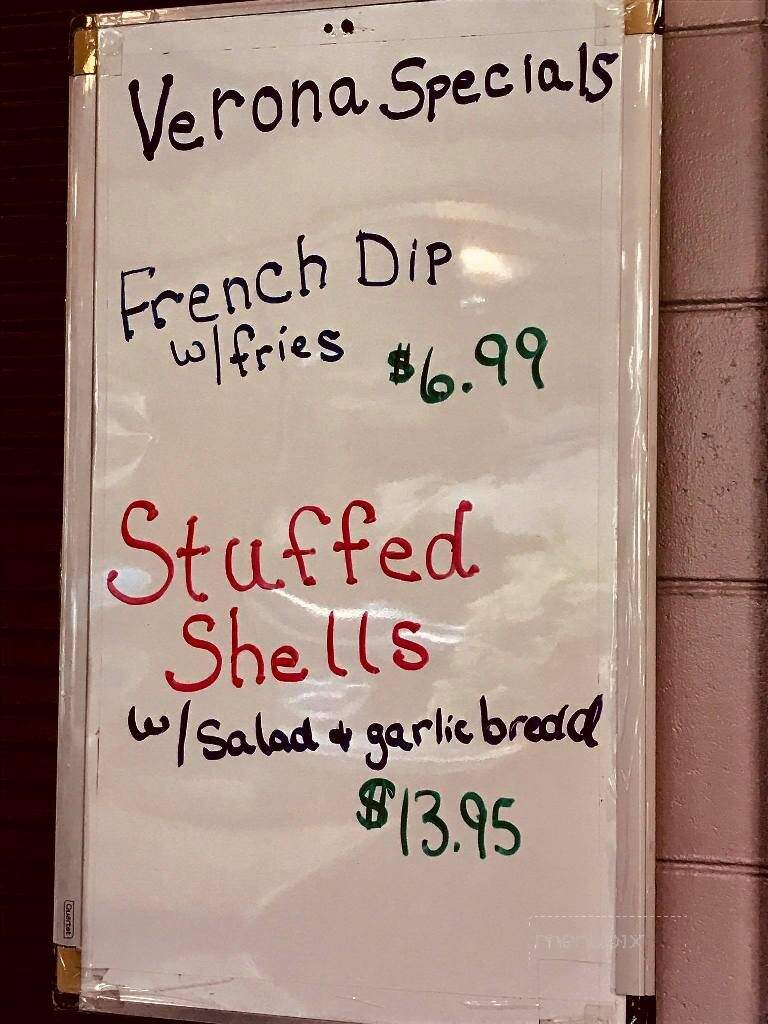 Verona Specials
French Dip
w/fries $6.99
Stuffed
Shells
w/salad & garlic bread
$13.95
Quartet
menupix